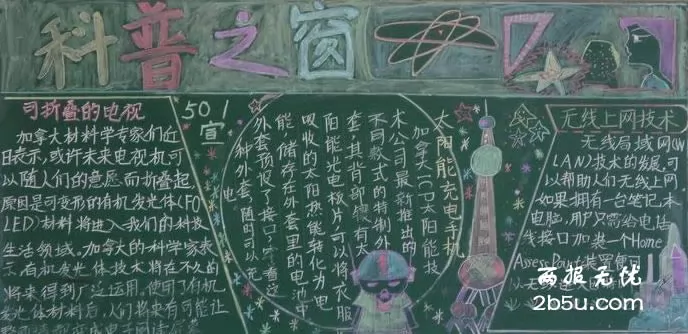 科普之窗
可折叠的电视
501
宣
加拿大材料学专家们近
日表示,或许未来电视机可
以随人们的意愿而折叠起,
原因是可变形的有机发光体(FO
LED)材料将进入我们的科技
生活领域。加拿大的科学家表
示,有机发光体技术将在不久的
将来得到广泛运用,使用了有机
发光体材料后,人们将来有可能让
太阳能充电手机
加拿大ICP太阳能技
术公司最新推出的
不同款式的特制外
套,其背部镶有太
阳能光电核片,可以将衣服
吸收的太阳热能转化为电
能,储存在外套里的电池中
外套预设了接口,穿着这
种外套,随时可以充
电
无线上网技术
无线局域网(W
LAN)技术的发展,可
以帮助人们无线上网,
如果拥有一台笔记本
电脑,用户只需给电话
线接口加装一个Home
Assess Point装置便可
以无线
两报无忧
2b5u.com